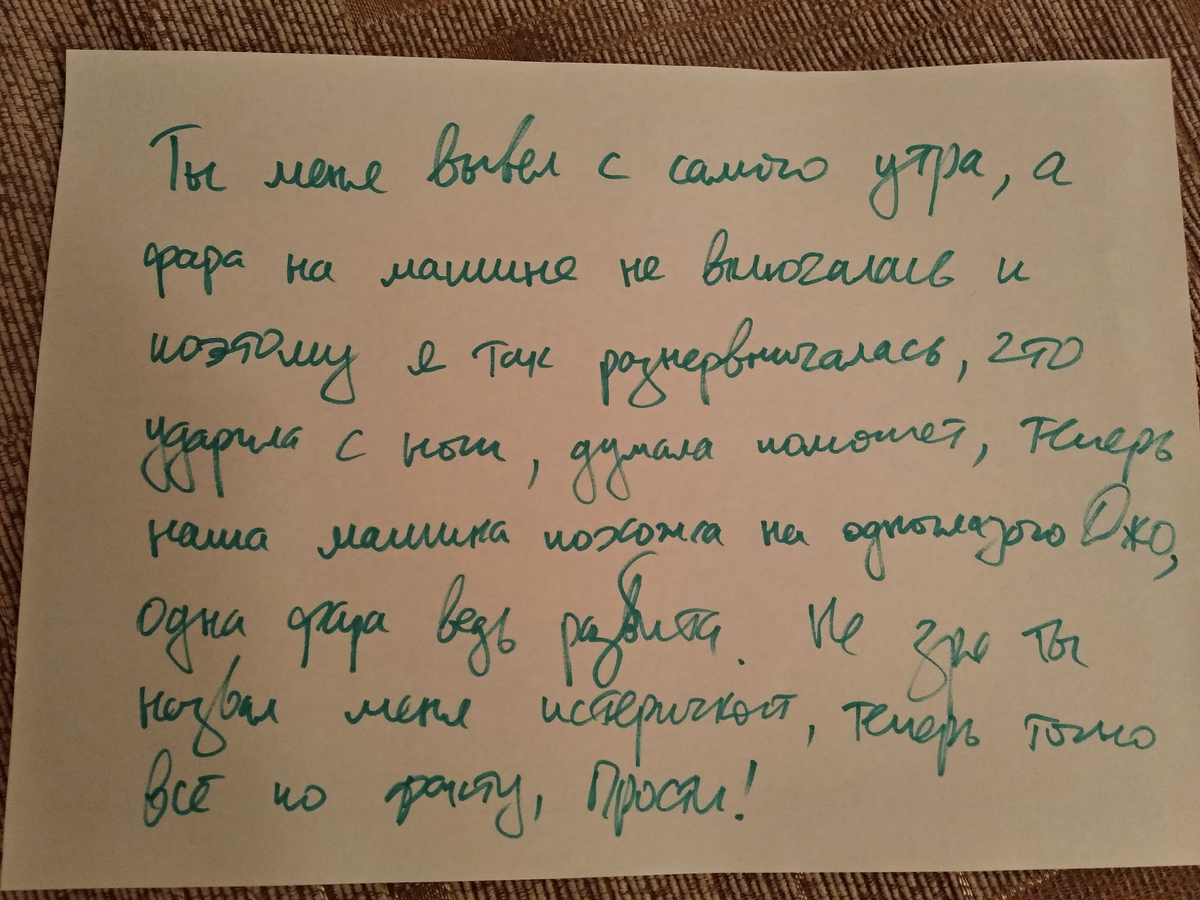 Ты меня вывел с самого утра, а
фара на машине не включалась и
поэтому я так разнервничалась, что
ударила с ноги, думала поможет, теперь
наша машина похожа на одноглазого Джо,
одна фара ведь разбита. Не зря ты
назвал меня истеричкой, теперь точно
всё по факту, Прости!